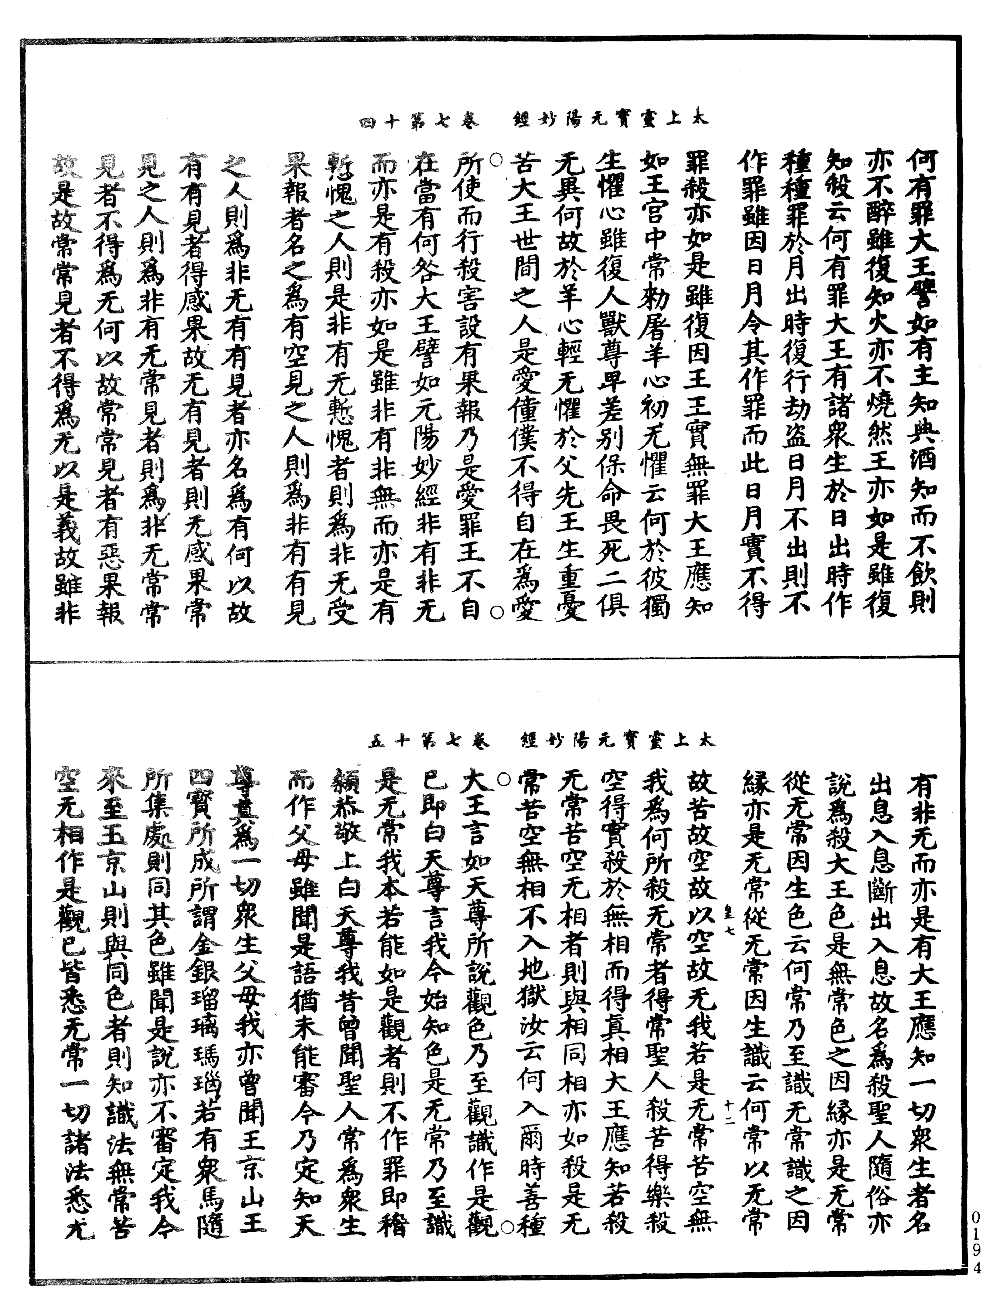 太上靈寶元陽妙經　卷七第十四
何有罪大王譬如有主知典酒知而不飲則
亦不醉雖復知火亦不燒然王亦如是雖復
知殺云何有罪大王有諸衆生於日出時作
種種罪於月出時復行劫盜日月不出則不
作罪雖因日月令其作罪而此日月實不得
罪殺亦如是雖復因王王實無罪大王應知
如王宮中常勑屠羊心初无懼云何於彼獨
生懼心雖復人獸尊卑差别保命畏死二俱
无異何故於羊心輕无懼於父先王生重憂
苦大王世間之人是愛僮僕不得自在為愛
所使而行殺害設有果報乃是愛罪王不自
在當有何咎大王譬如元陽妙經非有非无
而亦是有殺亦如是雖非有非無而亦是有
慙愧之人則是非有无慙愧者則為非无受
果報者名之為有空見之人則為非有有見
之人則為非无有有見者亦名為有何以故
有有見者得感果故无有見者則无感果常
見之人則為非有无常見者則為非无常常
見者不得為无何以故常常見者有惡果報
故是故常常見者不得為无以是義故雖非
太上靈寶元陽妙經　卷七第十五
有非无而亦是有大王應知一切衆生者名
出息入息斷出入息故名為殺聖人隨俗亦
說為殺大王色是無常色之因緣亦是无常
從无常因生色云何常乃至識无常識之因
緣亦是无常從无常因生識云何常以无常
皇七　十二
故苦故空故以空故无我若是无常苦空無
我為何所殺无常者得常聖人殺苦得樂殺
空得實殺於無相而得真相大王應知若殺
无常苦空无相者則與相同相亦如殺是无
常苦空無相不入地獄汝云何入爾時善種
大王言如天尊所說觀色乃至觀識作是觀
已即白天尊言我今始知色是无常乃至識
是无常我本若能如是觀者則不作罪即稽
顙恭敬上白天尊我昔曾聞聖人常為衆生
而作父母雖聞是語猶未能審今乃定知天
尊真為一切衆生父母我亦曾聞王京山王
四寶所成所謂金銀瑠璃瑪瑙若有衆馬隨
所集處則同其色雖聞是說亦不審定我今
來至玉京山則與同色者則知識法無常苦
空无相作是觀已皆悉无常一切諸法悉无
0194